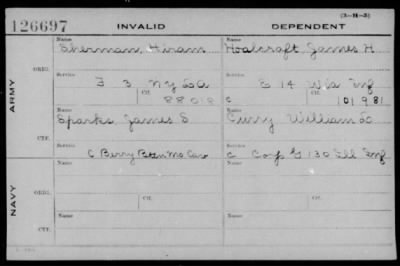 (3-H-3)
126697 INVALID DEPENDENT
Name Name
Sherman, Hiram Hoalcraft James H
ORIG.
Service Service
F 3 NY LA E 14 Wis Inf
Ctf. Ctf.
88018 C 101981
ARMY
Name Name
Sparks, James S Curry William
CTF.
Service Service
C Berry Battn Mo Cav C Corp G 130 Ill Inf
Name Ctf. Name Ctf.
ORIG.
NAVY
Name Name
CTF.